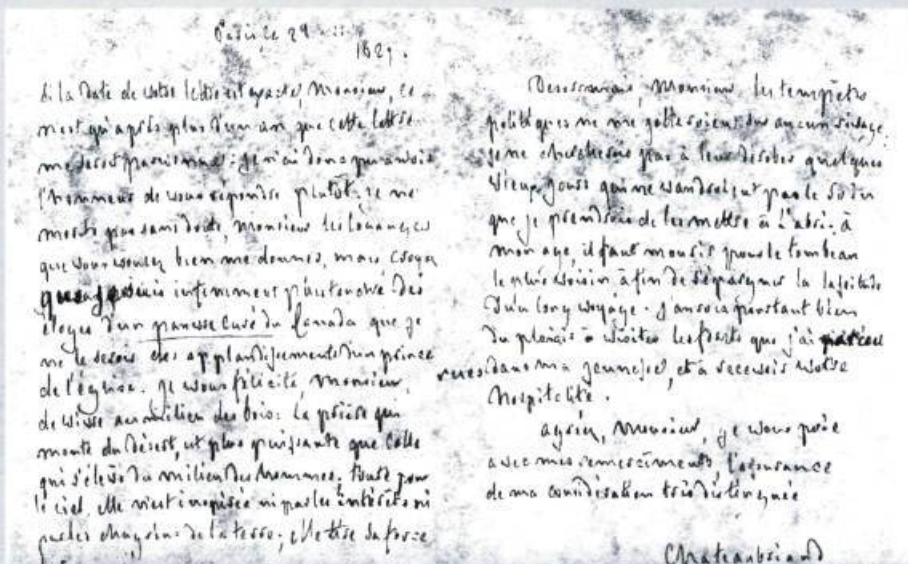 Paris, ce 29
Si la date de votre lettre est exacte, Monsieur, ce
n'est qu'après plus d'un an que cette lettre
me seroit parvenue: je n'ai donc pu avoir
l'honneur de vous répondre plutôt. Je ne
mérite pas sans doute, Monsieur les louanges
que vous voulez bien me donner, mais croyez
que je suis infiniment plus des
éloges d'un pauvre curé du Canada que je
ne le serois des applaudissements d'un prince
de l'église. Je vous félicite Monsieur,
de vivre au milieu des bois: la prière qui
monte du désert, est plus puissante que celle
qui s'élève du milieu des hommes, toute pour
le ciel, elle n'est inspirée ni par les intérêts ni
par les chagrins de la terre; elle tire sa force
Desormais, Monsieur, les tempêtes
politiques ne me jetteroient sur aucun rivage,
je ne chercherois pas à leur dérober quelques
vieux jours qui ne vaudroient pas le soin
que je prendrois de les mettre à l'abri: à
mon age, il faut mourir pour le tombeau
le plus voisin afin de s'épargner la lassitude
d'un long voyage. J'aurois pourtant bien
du plaisir à visiter les forêts que j'ai parcou
rues dans ma jeunesse, et à recevoir votre
hospitalité.
agréez, Monsieur, je vous prie
avec mes remerciments, l'assurance
de ma considération très distinguée
Chateaubriand